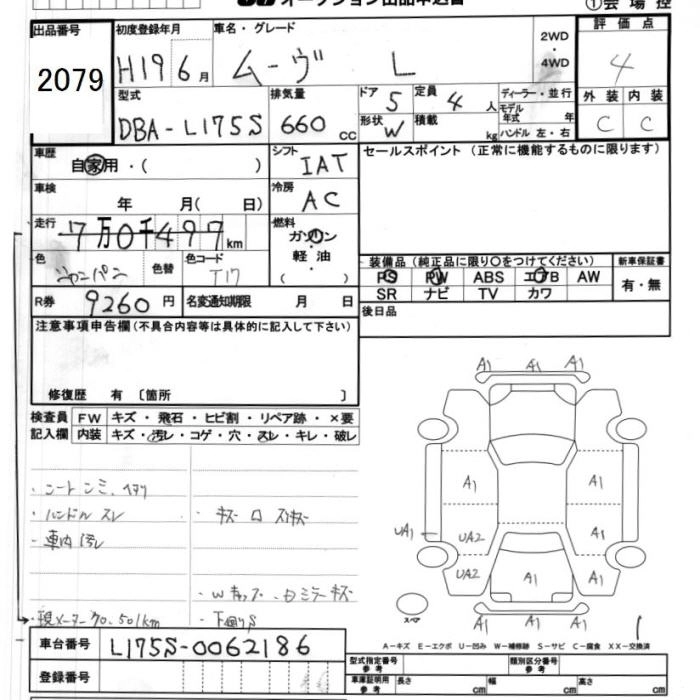 オークション出品申込書 ①会場控
出品番号 初度登録年月 車名・グレード 2WD・4WD 評価点
2079 H19 6月 ムーヴ L 4
型式 排気量 ドア 5 定員 4人 ディーラー・並行 外装 内装
モデル年式 年
DBA-L175S 660cc 形状 W 積載 kg ハンドル 左・右 C C
車歴 シフト セールスポイント(正常に機能するものに限ります)
自家用・( ) IAT
車検 冷房
年 月( 日) AC
走行 燃料
7万0千497km ガソリン・軽油 ( )
色 シャンパン 色替 色コード T17 装備品(純正品に限り〇をつけてください) 新車保証書
PS PW ABS エアB AW 有・無
SR ナビ TV カワ
R券 9260円 名変通知期限 月 日 後日品
注意事項申告欄(不具合内容等は具体的に記入して下さい)
修復歴 有 〔箇所 〕
検査員 FW キズ・飛石・ヒビ割・リペア跡・×要
記入欄 内装 キズ・汚レ・コゲ・穴・スレ・キレ・破レ
・シートシミ、ヘタリ
・ハンドルスレ ・キズ
・車内汚レ
・ミラーキズ
現メーター70,501km ・下回りS
A1 A1 A1
A1 A1
UA1 UA2 A1
UA2 A1 A1
A1 A1 A1
スペア
A-キズ E-エクボ U-凹み W-補修跡 S-サビ C-腐食 XX-交換済
車台番号 L175S-0062186
型式指定番号 参考 類別区分番号 参考
登録番号 車庫証明用 参考 長さ cm 幅 cm 高さ cm